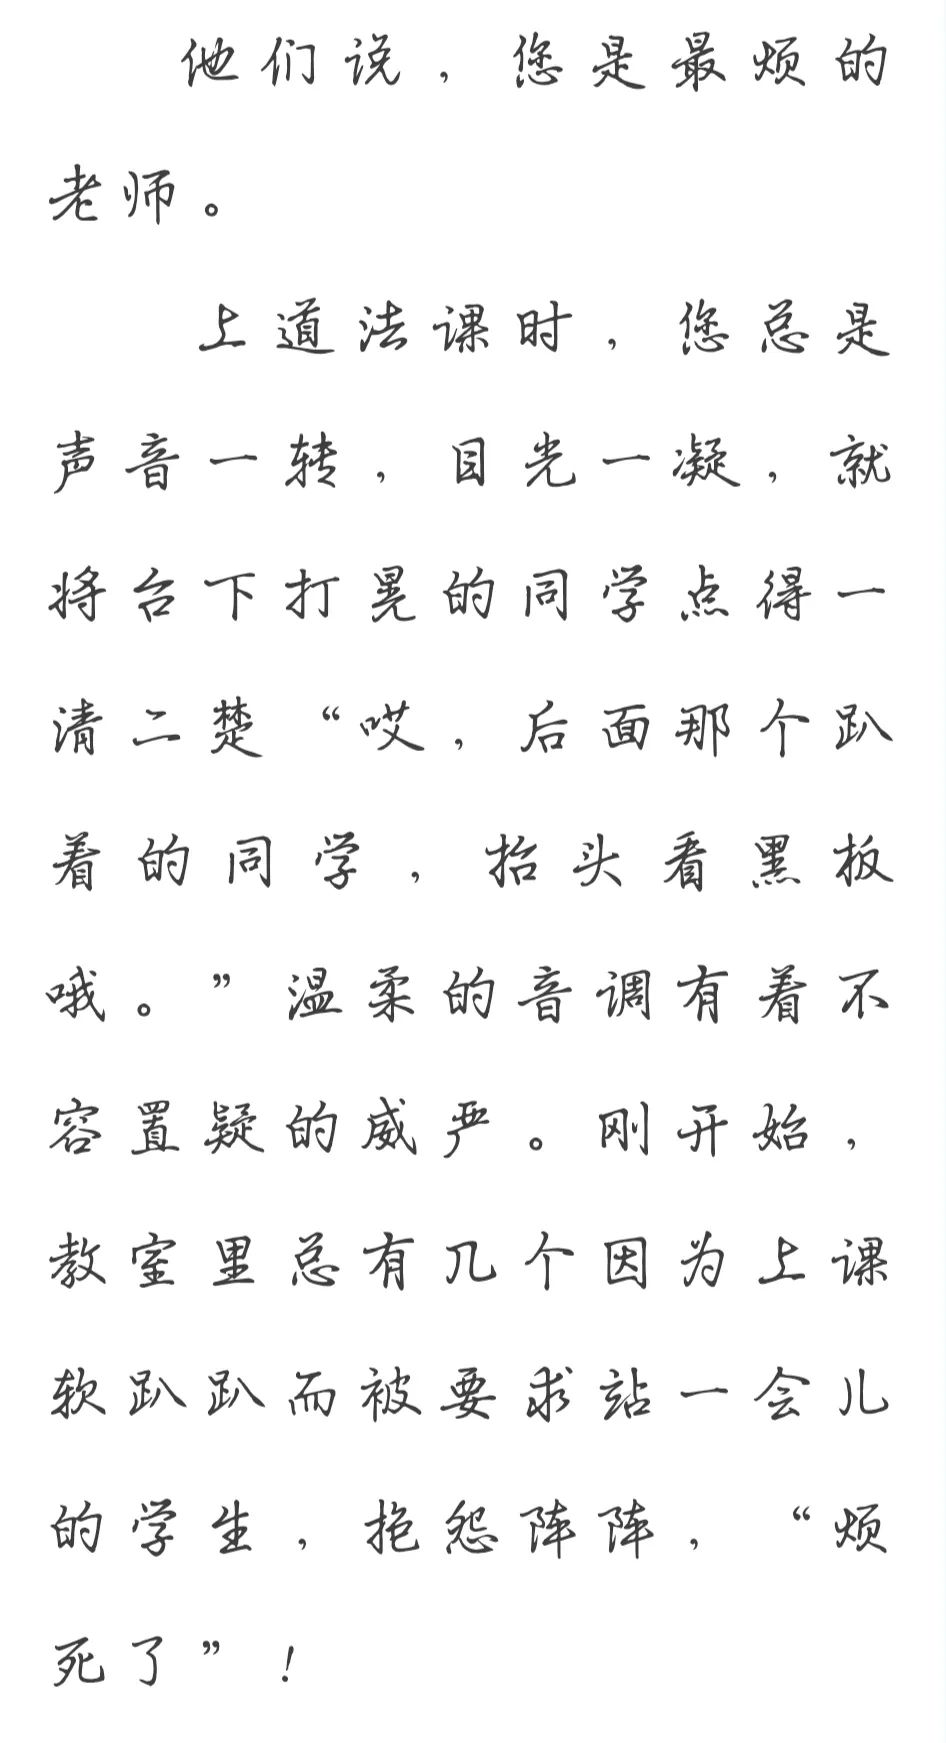 他们说，您是最烦的
老师。
上道法课时，您总是
声音一转，目光一凝，就
将台下打晃的同学点得一
清二楚“哎，后面那个趴
着的同学，抬头看黑板
哦。”温柔的音调有着不
容置疑的威严。刚开始，
教室里总有几个因为上课
软趴趴而被要求站一会儿
的学生，抱怨阵阵，“烦
死了”！